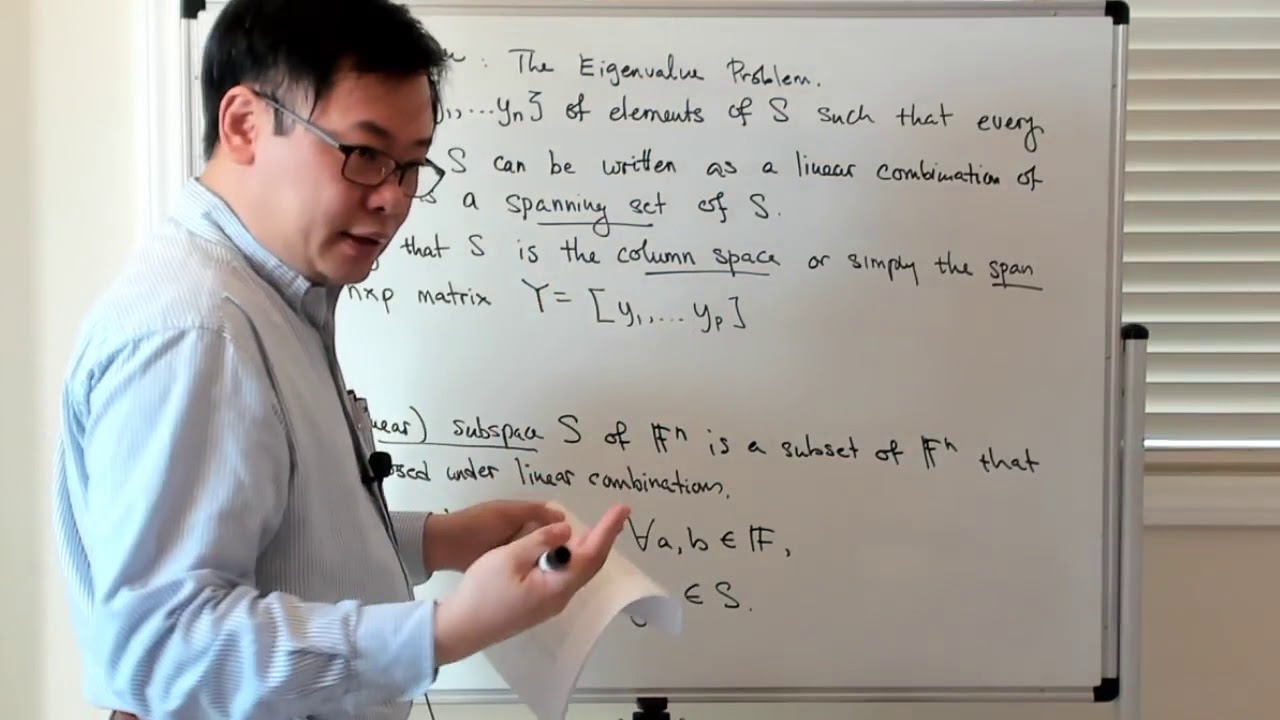 : The Eigenvalue Problem.
,...yn} of elements of S such that every
S can be written as a linear combination of
a spanning set of S.
that S is the column space or simply the span
nxp matrix Y = [y1,... yp]
ear) subspace S of 𝔽ⁿ is a subset of 𝔽ⁿ that
osed under linear combinations.
∀a,b ∈ 𝔽,
∈ S.